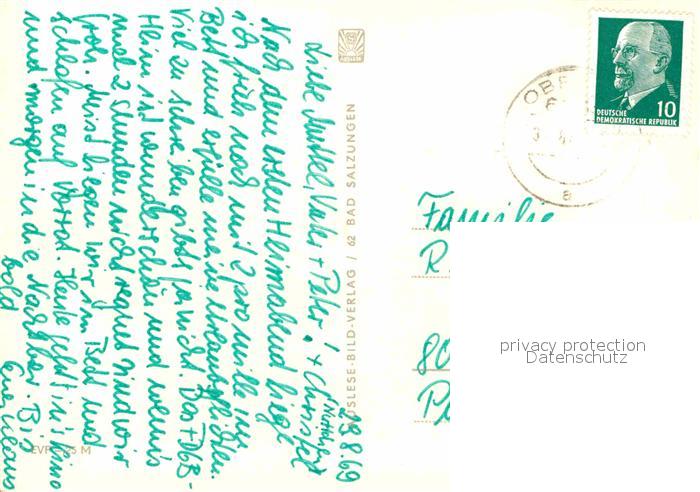 28.8.69
Liebe Muttel, Vater + Peter! + Christel
Nach dem ersten Heimabend liege
ich früh noch mit 2 promille im
Bett und erfülle meine Urlaubspflichten.
Viel zu schreiben gibts ja nicht. Das FDGB-
Heim ist wunderschön und wenns
mal 2 Stunden nicht regnet sind wir
froh. Meist liegen wir im Bett und
schlafen auf Vorrat. Heute geht's in's Kino
und morgen in die Nachtbar. Bis
bald
AUSLESE-BILD-VERLAG / 62 BAD SALZUNGEN
EVP –,25 M
DEUTSCHE
DEMOKRATISCHE REPUBLIK
10
OBE
a
Familie
R.
80
P
privacy protection
Datenschutz